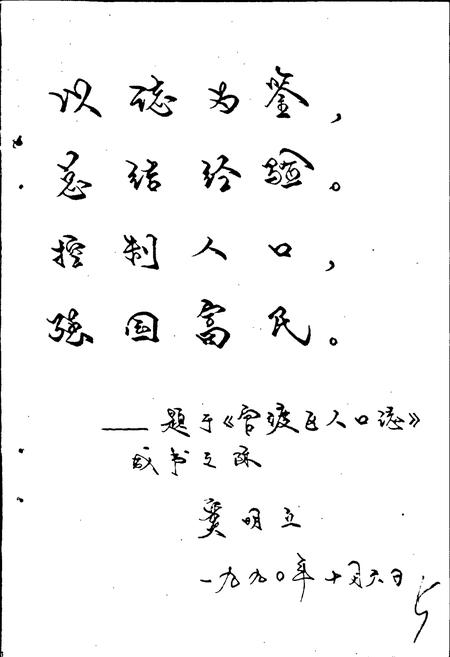 以誌为鉴，
总结经验。
控制人口，
强国富民。
——题于《官渡区人口誌》
成书之际
窦明立
一九九〇年十月六日